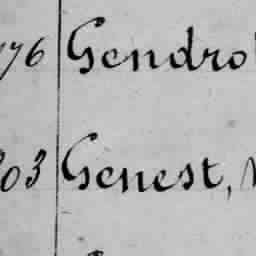 76 Gendro
03 Genest,